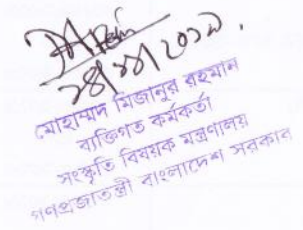 ২৪/১১/২০১৯
মোহাম্মদ মিজানুর রহমান
ব্যক্তিগত কর্মকর্তা
সংস্কৃতি বিষয়ক মন্ত্রণালয়
গণপ্রজাতন্ত্রী বাংলাদেশ সরকার